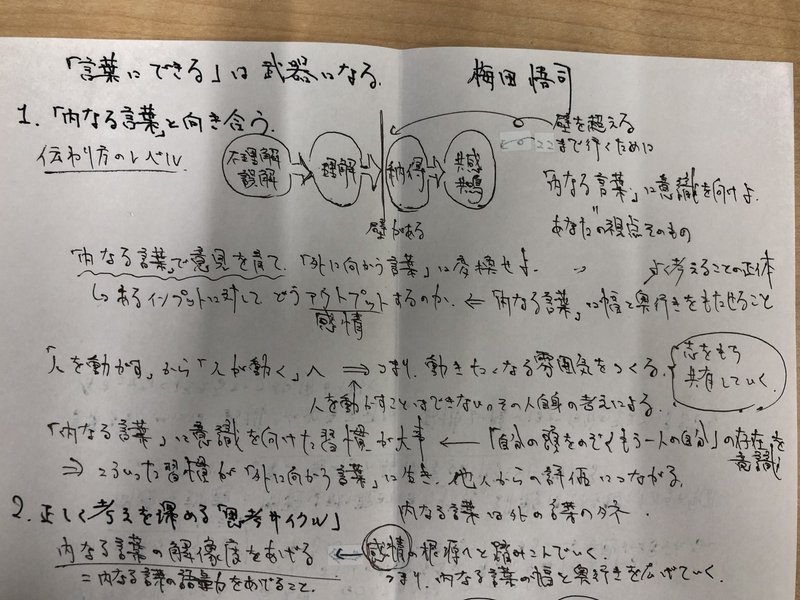 「言葉にできる」は武器になる. 梅田悟司
1.「内なる言葉」と向き合う.
伝わり方のレベル
不理解
誤解
理解
納得
共感
共鳴
壁がある
壁を超える
ここまで行くために
「内なる言葉」に意識を向けよ.
あなたの視点そのもの
「内なる言葉」で意見を育て、「外に向かう言葉」に変換せよ. → よく考えることの正体
↳あるインプットに対してどうアウトプットするのか. ⇐「内なる言葉」に幅と奥行きをもたせること
感情
「人を動かす」から「人が動く」へ ⇒ つまり、動きたくなる雰囲気をつくる.
志をもち
共有していく.
人を動かすことはできない。その人自身の考えによる.
「内なる言葉」に意識を向けた習慣が大事 ← 「自分の頭をのぞくもう一人の自分」の存在を
意識
⇒ こういった習慣が「外に向かう言葉」に生き、他人からの評価につながる.
2. 正しく考えを深める「思考サイクル」 内なる言葉は外の言葉のタネ.
内なる言葉の解像度をあげる ← 感情の根源へと踏みこんでいく.
=内なる言葉の語彙力をあげること. つまり、内なる言葉の幅と奥行きを広げていく.